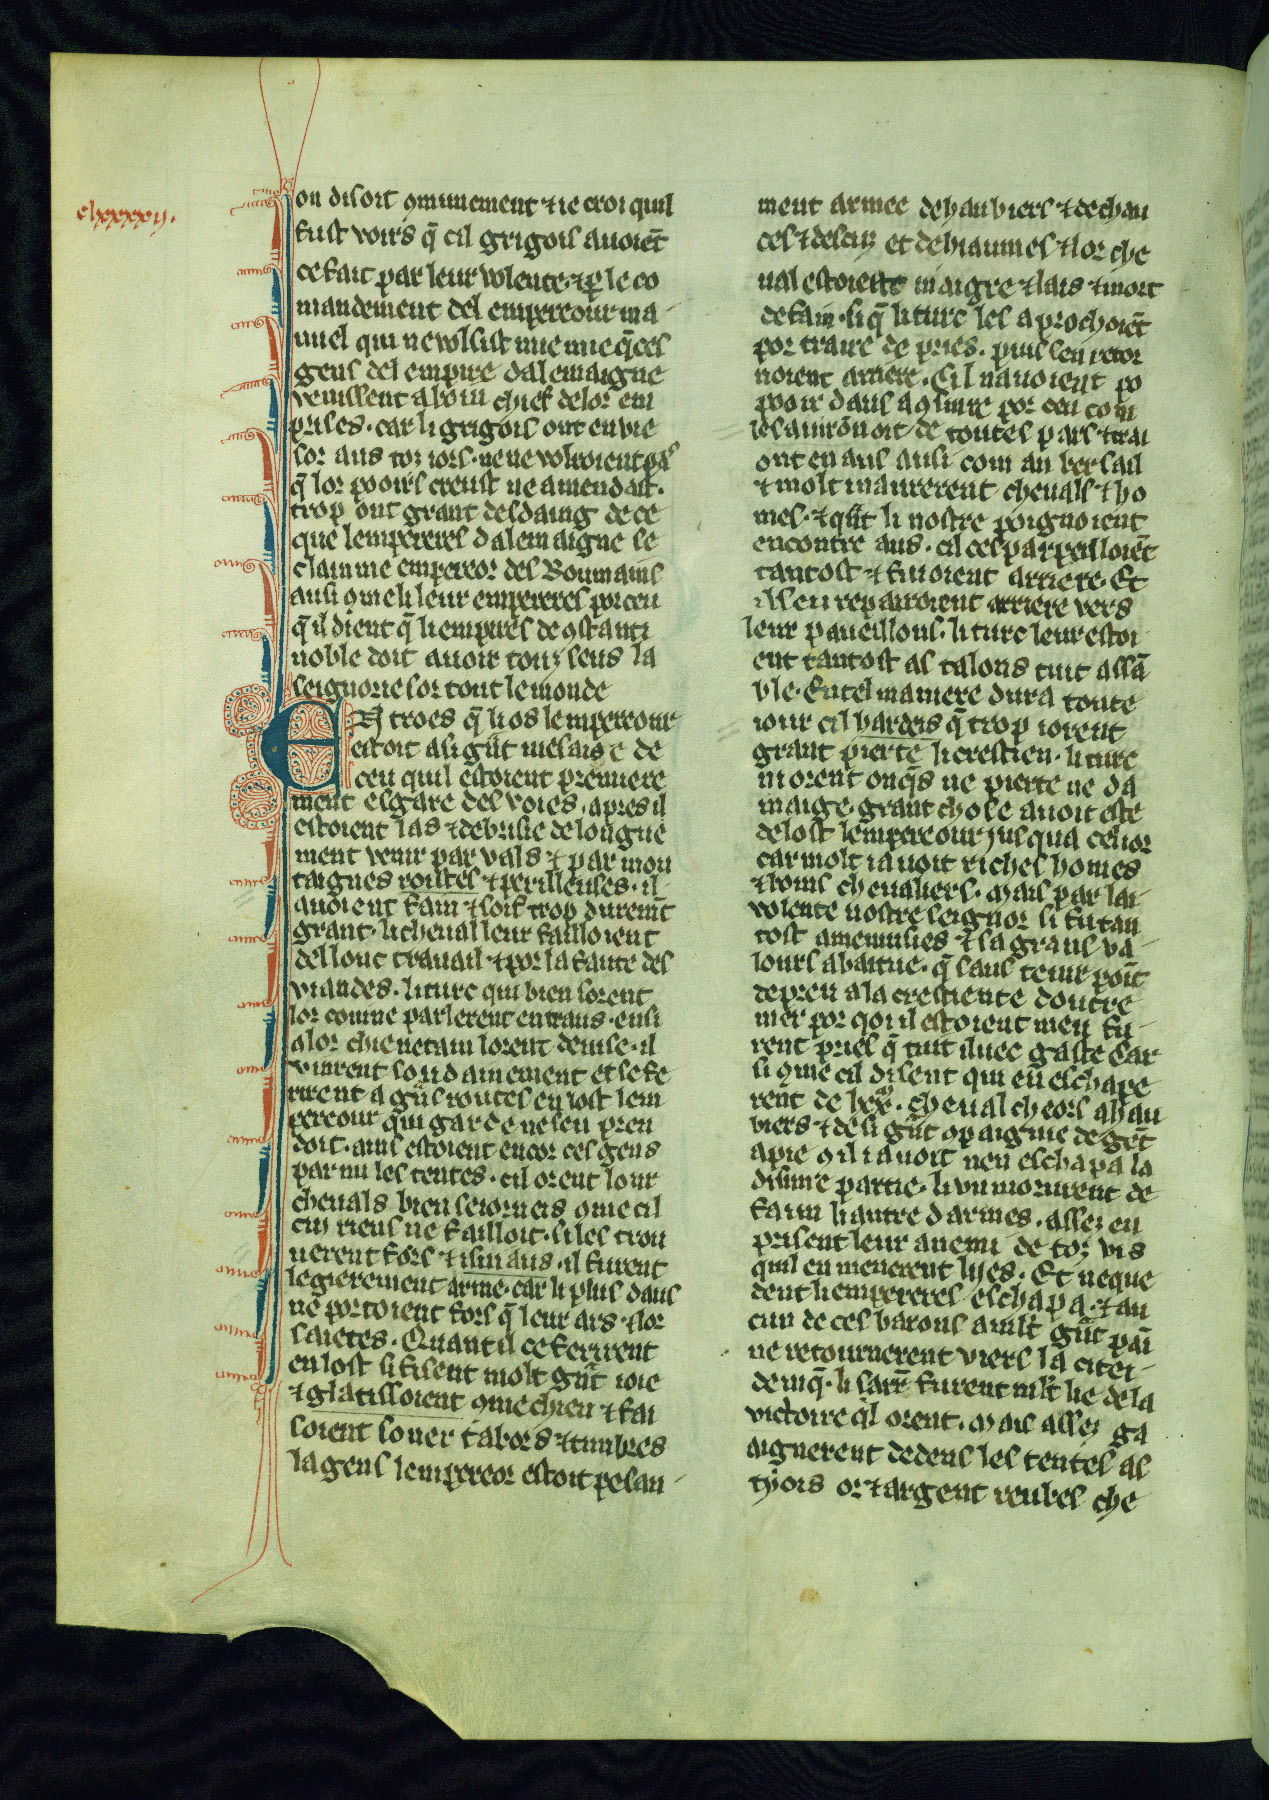 clxxxxij.
on disoit ꝯmunement ⁊ ie croi quil
fust voirs q̄ cil grigois auoiēt
ce fait par leur volente ⁊ ꝑ le co
mandement del empereour ma-
nuel qui ne volsist mie mie q̄ ces
gens del empire dalemaigne
venissent a boin chief de lor em
prises. car li grigois ont enuie
sor aus toz iors. ne ne volroient pas
q̄ lor pooirs creust ne amendast.
trop ont grant desdaing de ce
que lempereres dalemaigne se
claimme empereor des Roumains
ausi ꝯme li leur empereres por ceu
q̄ il dient q̄ li emperes de ꝯstanti
noble doit auoir touz seus la
seignorie sor tout le monde
EN troes q̄ li os lempereour
estoit a si gn̄t mesaise de
ceu quil estoient premiere
ment esgare des voies. apres il
estoient las ⁊ debrisie de longue
ment venir par vals ⁊ par mon
taignes rostes ⁊ perilleuses. il-
auoient fain ⁊ soif trop duremēt
grant. li cheual leur failloient
dellonc trauail ⁊ por la faute des
viandes. li turc qui bien sorent
lor couine parlerent entraus. ensi
a lor chieuetain lorent deuise. il
vinrent soudainement et se fe
rirent a gn̄s routes en lost lem
pereour qui garde ne sen pren
doit. ains estoient encor ces gens
parmi les tentes. cil orent lour
cheuals bien seiorneis ꝯme cil
cui riens ne failloit. si les trou
uerent fors ⁊ isniaus. il furent
legierement arme. car li plus daus
ne portoient fors q̄ leur ars ⁊ lor
saietes. Quant il ce ferirent
en lost si fisent molt gn̄t ioie
⁊ glatissoient ꝯme chien ⁊ fai
soient soner tabors ⁊ timbres
la gens lempereor estoit pesan-
ment armee de haubiers ⁊ de chau
ces ⁊ descuz et de hiaumes ⁊ lor che
ual estoient maigre ⁊ lais ⁊ mort
de fain. si q̄ li turc les aprochoiēt
por traire de pries. puis sen retor
noient arriere. Cil nauoient po
pooir daus aꝯsiure por ceu com
les auirōnoit de toutes pars ⁊ trai
ont en aus ausi com an bersail
⁊ molt inaurerent cheuals ⁊ ho
mes. ⁊ qn̄t li nostre poignoient
encontre aus. cil ces parpeilloiēt
tantost ⁊ fuioient arriere. Et
il sen repairoient arriere vers
leur paueillons. li turc leur estoi
ent tantost as talons tuit assā
ble. En tel maniere dura toute
iour cil hardeis q̄ trop iorent
grant pierte li crestien. li turc
ni orent onq̄s ne pierte ne da
maige. grant chose auoit este
de lost lempereour iusqua cel ior
car molt iauoit riches homes
⁊ boins cheualiers. Mais par lai
volente nostre seignor si fu tan
tost amenuisies ⁊ sa grans va-
lours abatue. q̄ sans tenir point
de preu a la crestiente doutre
mer por qoi il estoient meu fu-
rent pries q̄ tuit iluec gaste Car
si ꝯme cil disent qui en eschape
rent de lxx̄. cheualcheors a hau
biers ⁊ de si gn̄t ꝯpaignie de gēt
a pie ꝯ il i auoit nen eschapa la
disime partie. li vn morurent de
faim li autre darmes. assez en
prisent leur anemi de toz vis
quil en menerent lijes. Et neque
dent li empereres eschapa. ⁊ au
cun de ces barons a mlt gn̄t pain
ne retournerent viers la citei-
de niq̄. li sarr̄ furent mlt lie de la
victoire q̄l orent. Mais assez ga
aignerent dedens les tentes as
tyois or ⁊ argent reubes che